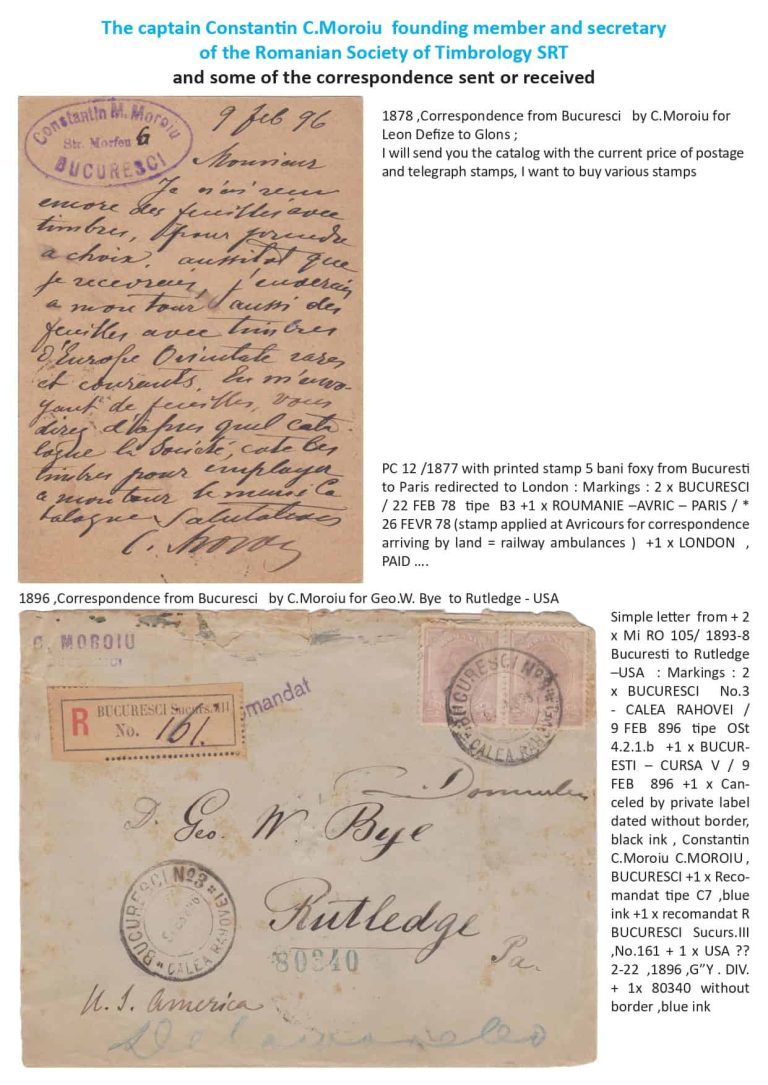 The captain Constantin C.Moroiu founding member and secretary
of the Romanian Society of Timbrology SRT
and some of the correspondence sent or received
Constantin M. Moroiu
Str. Morfeu 6
BUCURESCI
9 feb 96
Monsieur
Je n'ai reçu
encore des feuilles avec
timbres, pour prendre
a choix. aussitot que
je recevrais, j'enverais
a mon tour aussi des
feuilles avec timbres
d'Europe Orientale rares
et courants. En m'envo-
yant de feuilles, vous
direz d'apres quel cata-
logue la Société, cote les
timbres pour employer
a mon tour le meme Ca
talogue Salutations
C. Moroiu
1878 ,Correspondence from Bucuresci by C.Moroiu for
Leon Defize to Glons ;
I will send you the catalog with the current price of postage
and telegraph stamps, I want to buy various stamps
PC 12 /1877 with printed stamp 5 bani foxy from Bucuresti
to Paris redirected to London : Markings : 2 x BUCURESCI
/ 22 FEB 78 tipe B3 +1 x ROUMANIE –AVRIC – PARIS / *
26 FEVR 78 (stamp applied at Avricours for correspondence
arriving by land = railway ambulances ) +1 x LONDON ,
PAID ....
1896 ,Correspondence from Bucuresci by C.Moroiu for Geo.W. Bye to Rutledge - USA
C. MOROIU
R BUCURESCI Sucurs.III
No. 161.
mandat
BUCURESCI No3
CALEA RAHOVEI
D. Geo. W. Bye
BUCURESCI No3
CALEA RAHOVEI
Rutledge
80340
Pa.
U. S. America
Simple letter from + 2
x Mi RO 105/ 1893-8
Bucuresti to Rutledge
–USA : Markings : 2
x BUCURESCI No.3
- CALEA RAHOVEI /
9 FEB 896 tipe OSt
4.2.1.b +1 x BUCUR-
ESTI – CURSA V / 9
FEB 896 +1 x Can-
celed by private label
dated without border,
black ink , Constantin
C.Moroiu C.MOROIU ,
BUCURESCI +1 x Reco-
mandat tipe C7 ,blue
ink +1 x recomandat R
BUCURESCI Sucurs.III
,No.161 + 1 x USA ??
2-22 ,1896 ,G”Y . DIV.
+ 1x 80340 without
border ,blue ink